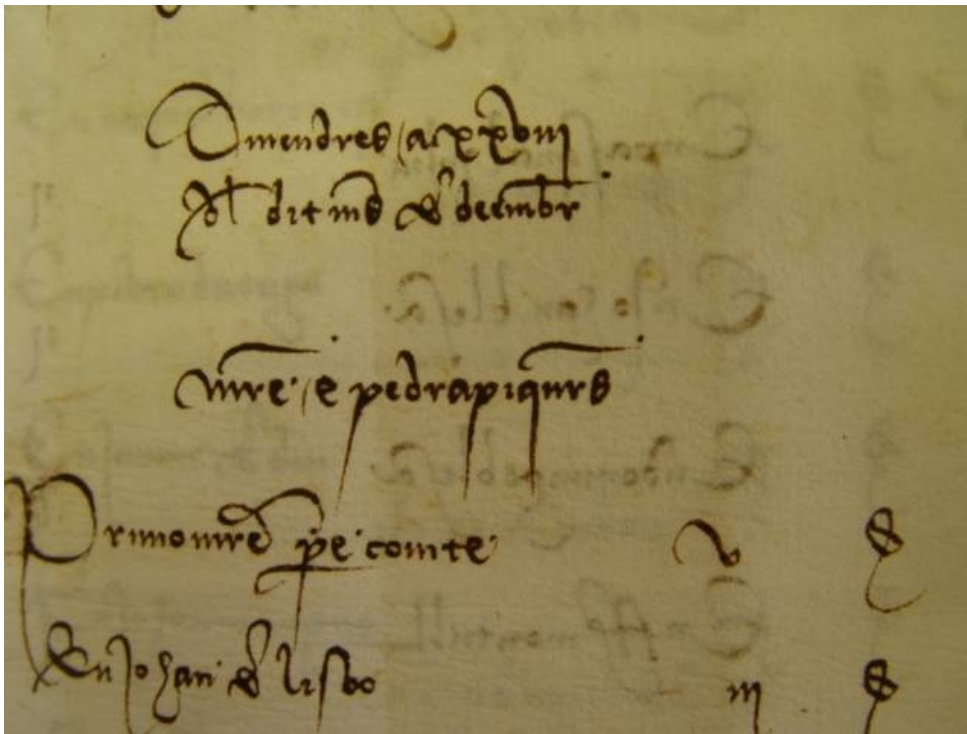 Divendres a xxviii
del dit mes de deembr
mre e pedrapiqurs
Primo mre pere comte v s
En johan de lisbo iii s